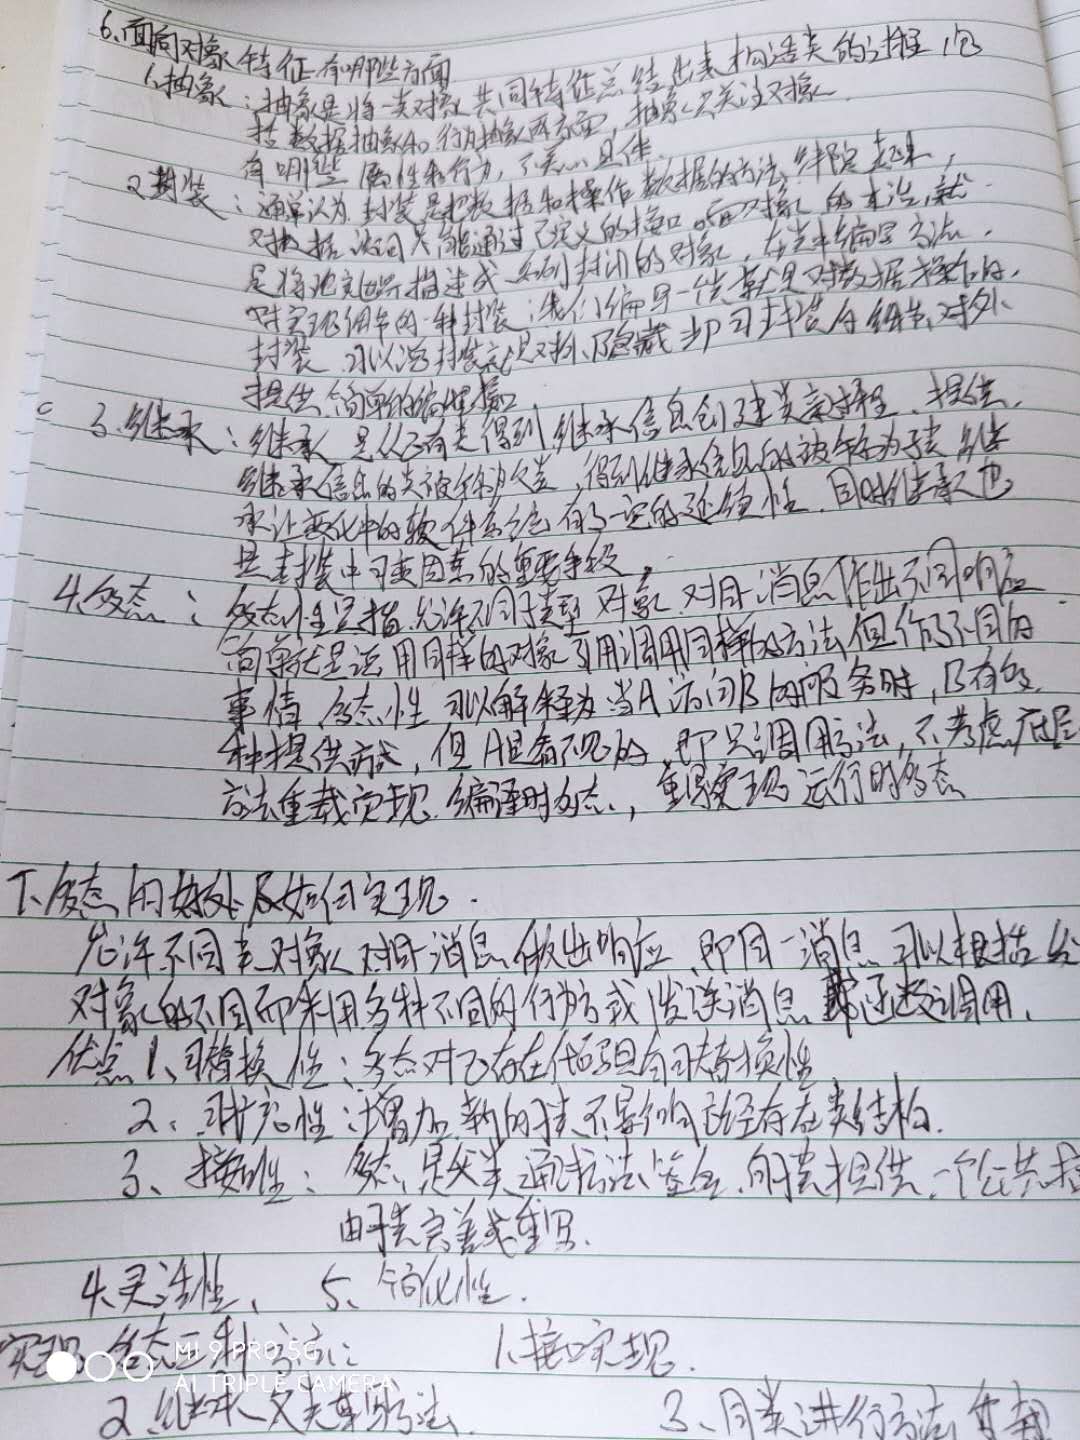 6、面向对象特征有哪些方面
1.抽象：抽象是将一类对象共同特征总结出来构造类的过程，包
括数据抽象和行为抽象两方面，抽象只关注对象
有哪些属性和行为，不关心具体
2.封装：通常认为封装是把数据和操作数据的方法绑定起来，
对数据访问只能通过已定义的接口。面向对象的本治就
是将现实世界描述成一系列封闭的对象，在类中编写方法
对实现细节的一种封装；我们编写一类就是对数据操作的
封装 可以说封装就是对外隐藏 即可封装 细节，对外
提供简单的编程接口
3.继承：继承是从已有类得到继承信息创建类新过程，提供
继承信息的类被称为父类，得到继承信息的被称为子类 继
承让变化中的软件系统有了一定的延续性，同时继承也
是封装中可变因素的重要手段，
4.多态：多态性是指允许不同子类型对象对同一消息作出不同响应
简单就是说用同样的对象引用调用同样的方法但作了不同的
事情，多态性可以解释为当A访问B的服务时，B有多
种提供方式，但A是看不见的，即只调用方法，不考虑底层
方法重载实现编译时多态，重写实现运行时多态
7、多态的好处及如何实现.
允许不同类对象对同一消息做出响应，即同一消息可以根据
对象的不同而采用多种不同的行为方式 发送消息就是函数调用，
优点1、可替换性：多态对已存在代码具有可替换性
2、可扩充性：增加新的子类不影响已经存在类结构.
3、接口性：多态，是父类通过方法签名，向子类提供一个公共接
由子类完善或重写.
4、灵活性、 5、简化性.
实现多态三种方法： 1、接口实现.
MI 9 PRO 5G
AI TRIPLE CAMERA
2、继承父类重写方法 3、同类进行方法重载